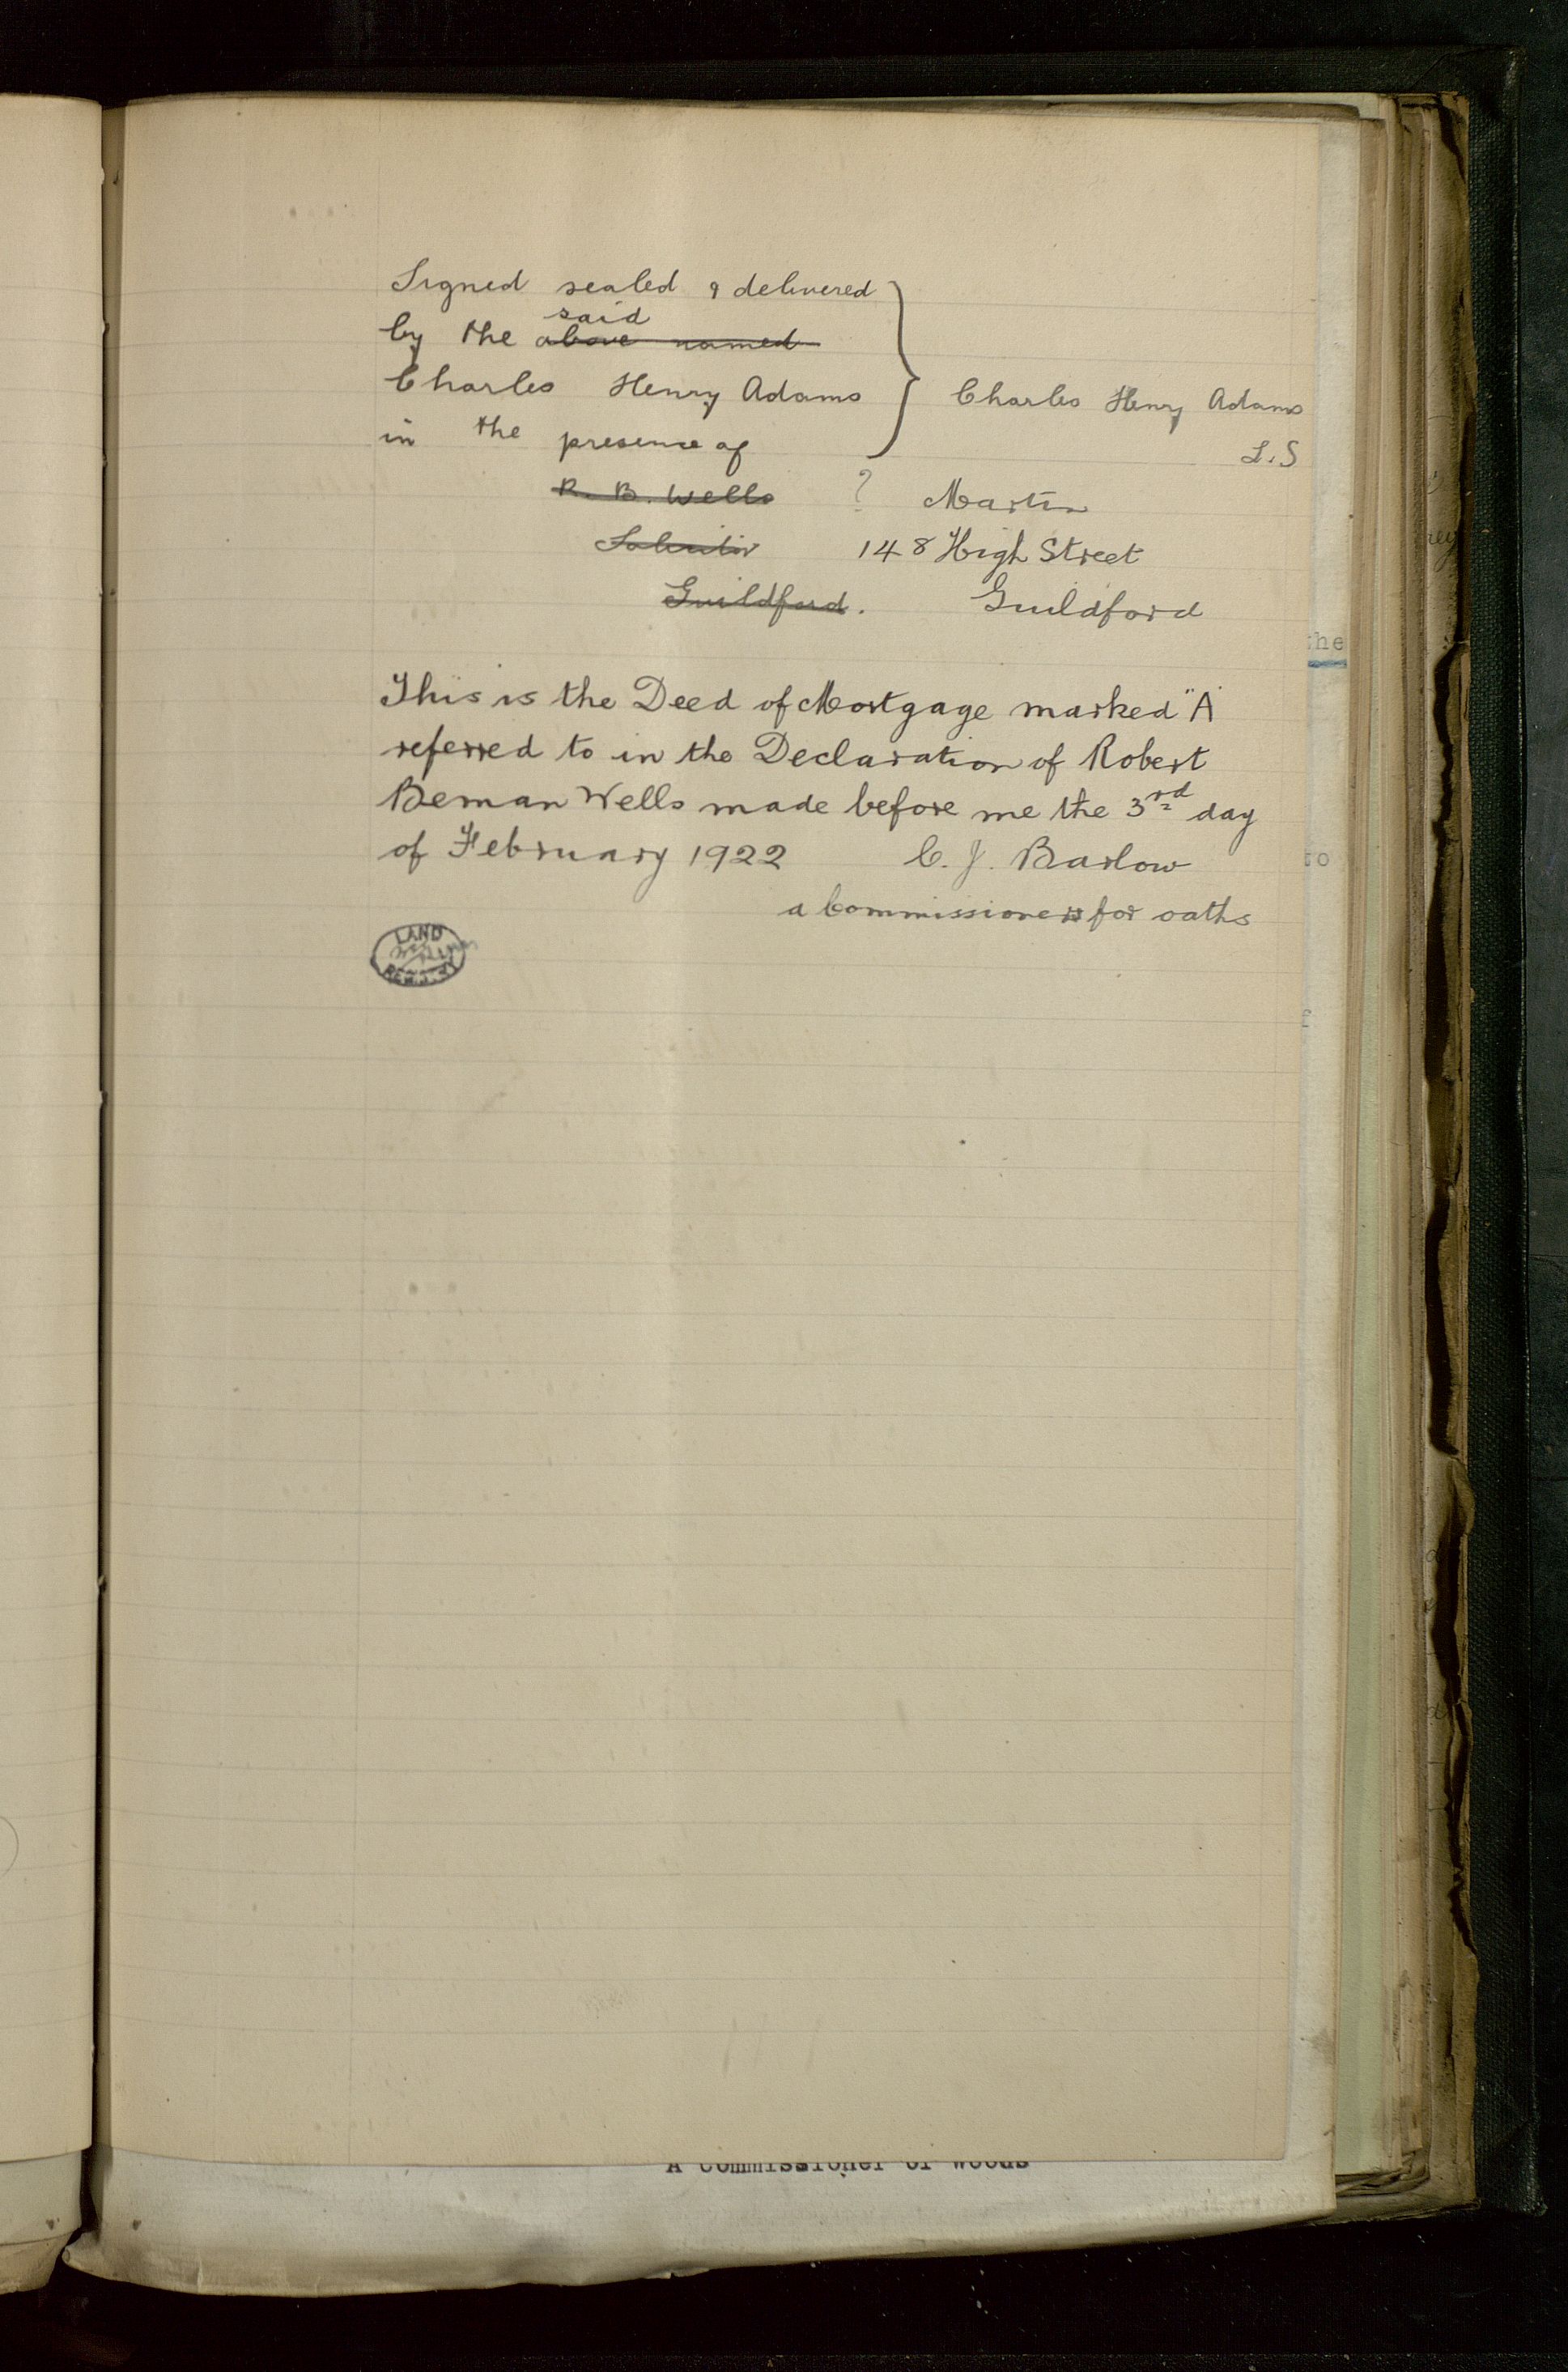 Signed sealed & delivered
said
by the above named
Charles Henry Adams
in the presence of
Charles Henry Adams
L.S
R. B. Wells
Solicitor
Guildford.
? Martin
148 High Street
Guildford
This is the Deed of Mortgage marked "A"
referred to in the Declaration of Robert
Beman Wells made before me the 3rd day
of February 1922 C. J. Barlow
a Commissioner for oaths
LAND
REGISTRY
the
to
f
A Commissioner of Woods